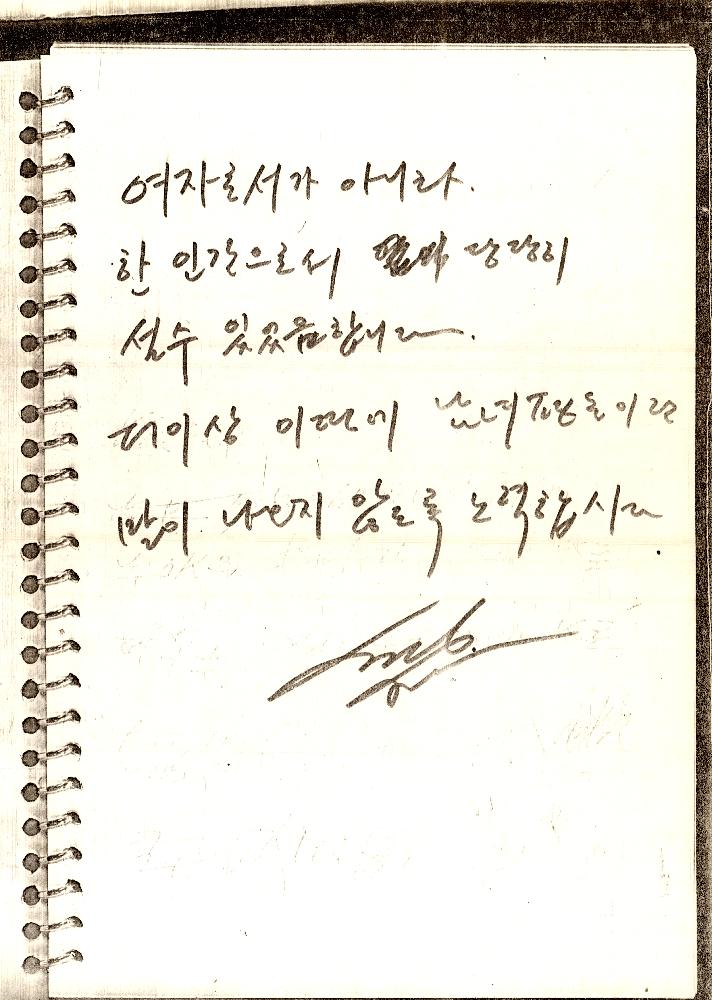 여자로서가 아니라.
한 인간으로서 당당히
설수 있었음합니다.
더이상 이땅에 남녀평등이란
말이 나오지 않도록 노력합시다